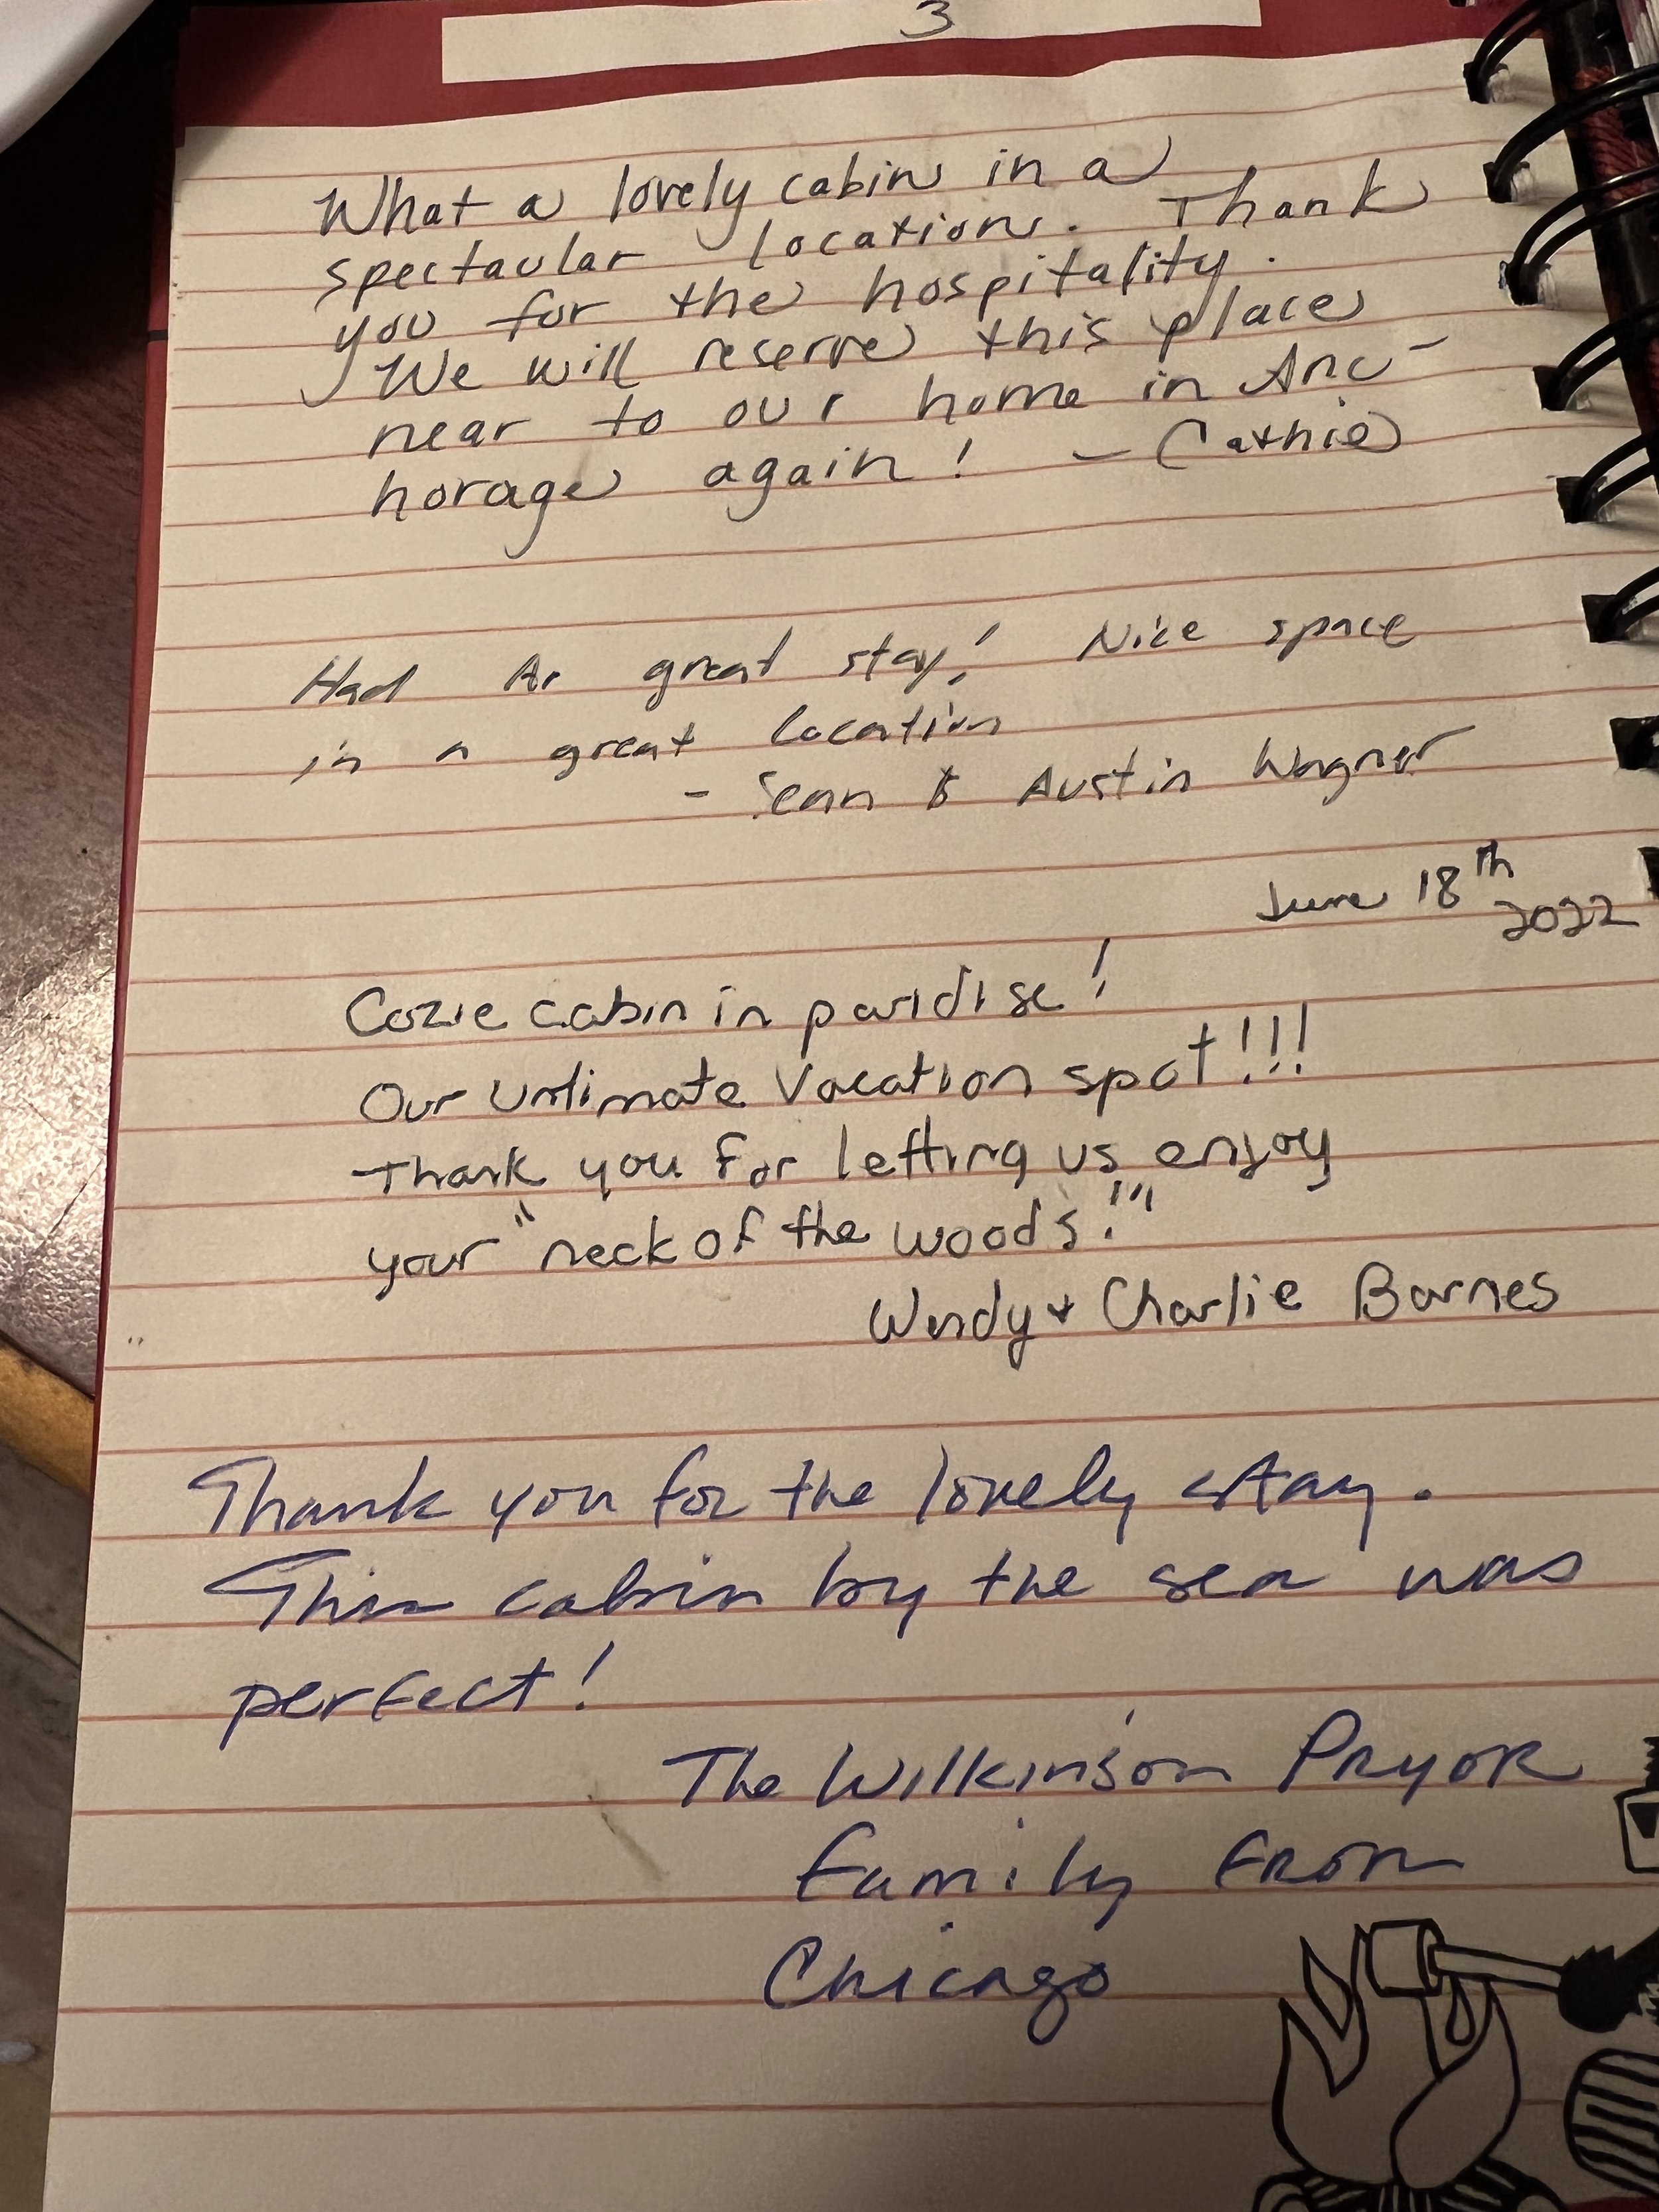 3
What a lovely cabin in a
spectaular location. Thank
you for the hospitality.
We will reserve this place
near to our home in Anc-
horage again! - Cathie
Had A great stay! Nice space
in a great location
- Sean & Austin Wagner
June 18th
2022
Cozie cabin in paridise!
Our Untimate Vacation spot!!!
Thank you for letting us enjoy
your "neck of the woods!"
Wendy + Charlie Barnes
Thank you for the lovely stay.
This cabin by the sea was
perfect!
The Wilkinson Pryor
family from
Chicago